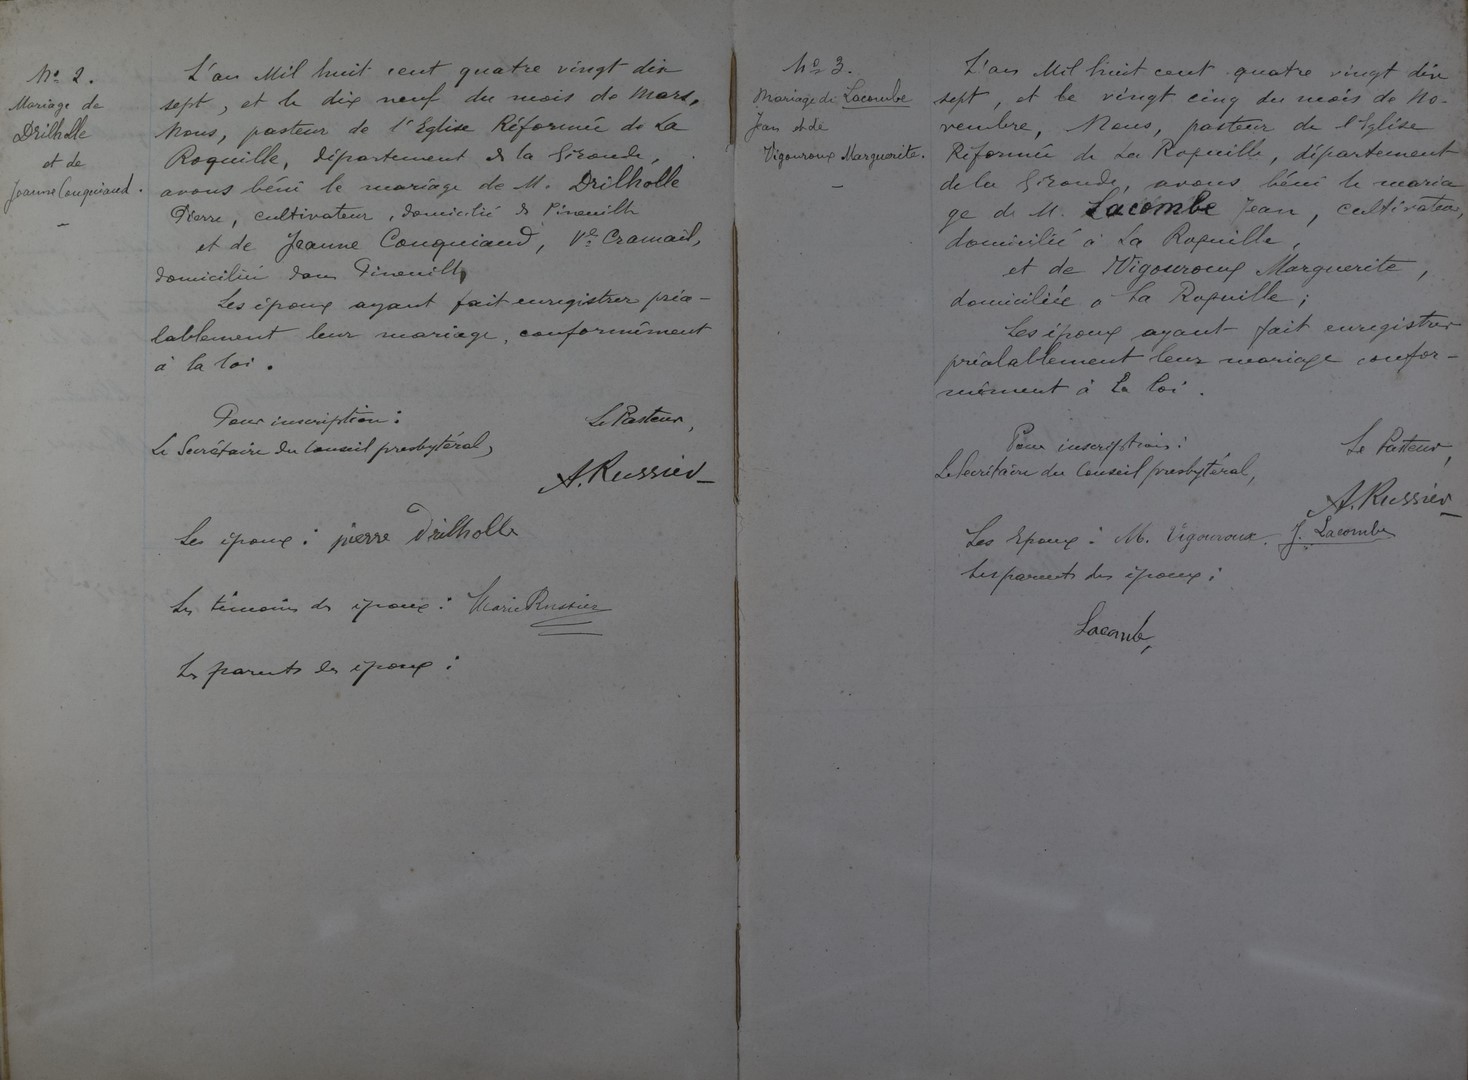 No 2.
Mariage de
Drilholle
et de
Jeanne Couquiaud.
L'an Mil huit cent quatre vingt dix
sept, et le dix neuf du mois de Mars,
Nous, pasteur de l'Eglise Réformée de La
Roquille, département de la Gironde,
avons béni le mariage de M. Drilholle
Pierre, cultivateur, domicilié à Pineuilh
et de Jeanne Couquiaud, Ve Cramail,
domiciliée dans Pineuilh
Les époux ayant fait enregistrer préa-
lablement leur mariage, conformément
à la loi.
Pour inscription:
Le Pasteur,
Le Secrétaire du Conseil presbytéral,
A. Russier
Les époux: pierre Drilholle
Les témoins des époux: Marie Russier
Les parents des époux:
No 3.
Mariage de Lacombe
Jean et de
Vigouroux Marguerite.
L'an Mil huit cent quatre vingt dix
sept, et le vingt cinq du mois de No-
vembre, Nous, pasteur de l'Eglise
Réformée de La Roquille, département
de la Gironde, avons béni le maria
ge de M. Lacombe Jean, cultivateur,
domicilié à La Roquille,
et de Vigouroux Marguerite,
domiciliée à La Roquille;
Les époux ayant fait enregistrer
préalablement leur mariage confor-
mément à la loi.
Pour inscription:
Le Pasteur,
Le Secrétaire du Conseil presbytéral,
A. Russier
Les Epoux: M. Vigouroux. J. Lacombe
Les parents des époux:
Lacombe,